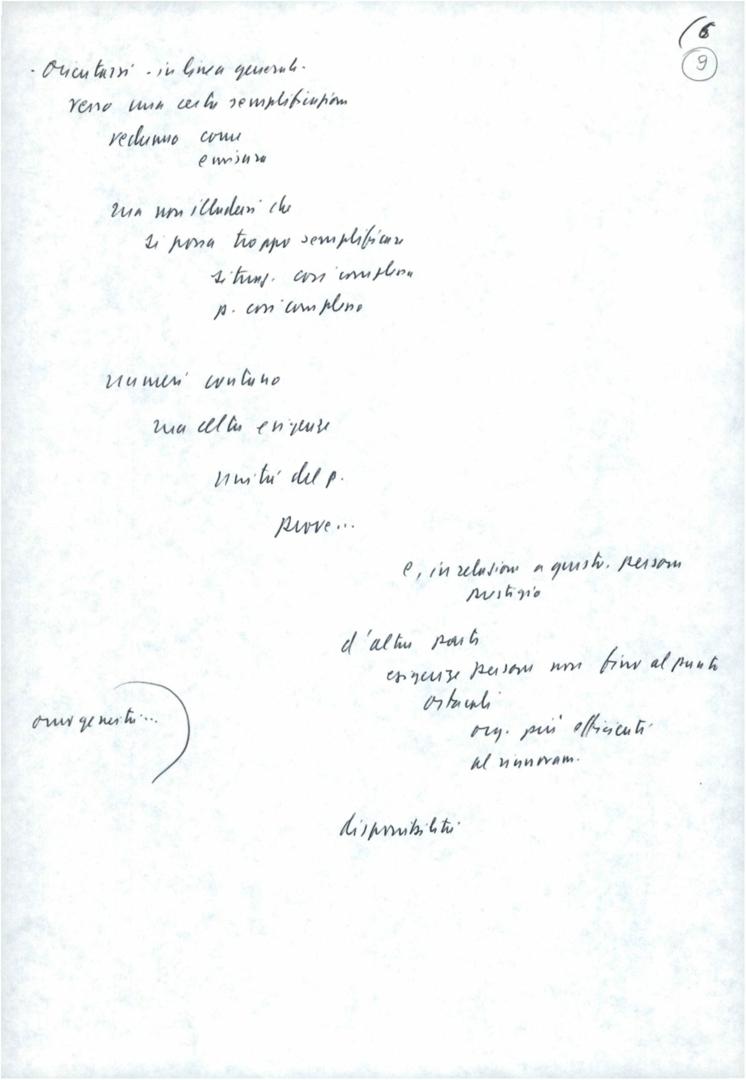 (6
9
- Orientarsi - in linea generale -
verso una certa semplificazione
vedremo come
e misura
ma non illudersi che
si possa troppo semplificare
situaz. così complessa
p. così complesso
numeri contano
ma altre esigenze
unità del p.
prove...
e, in relazione a queste. persone
prestigio
d'altra parte
esigenze persone non fino al punto
ostacoli
org. più efficienti
al rinnovam.
omogeneità...
disponibilità